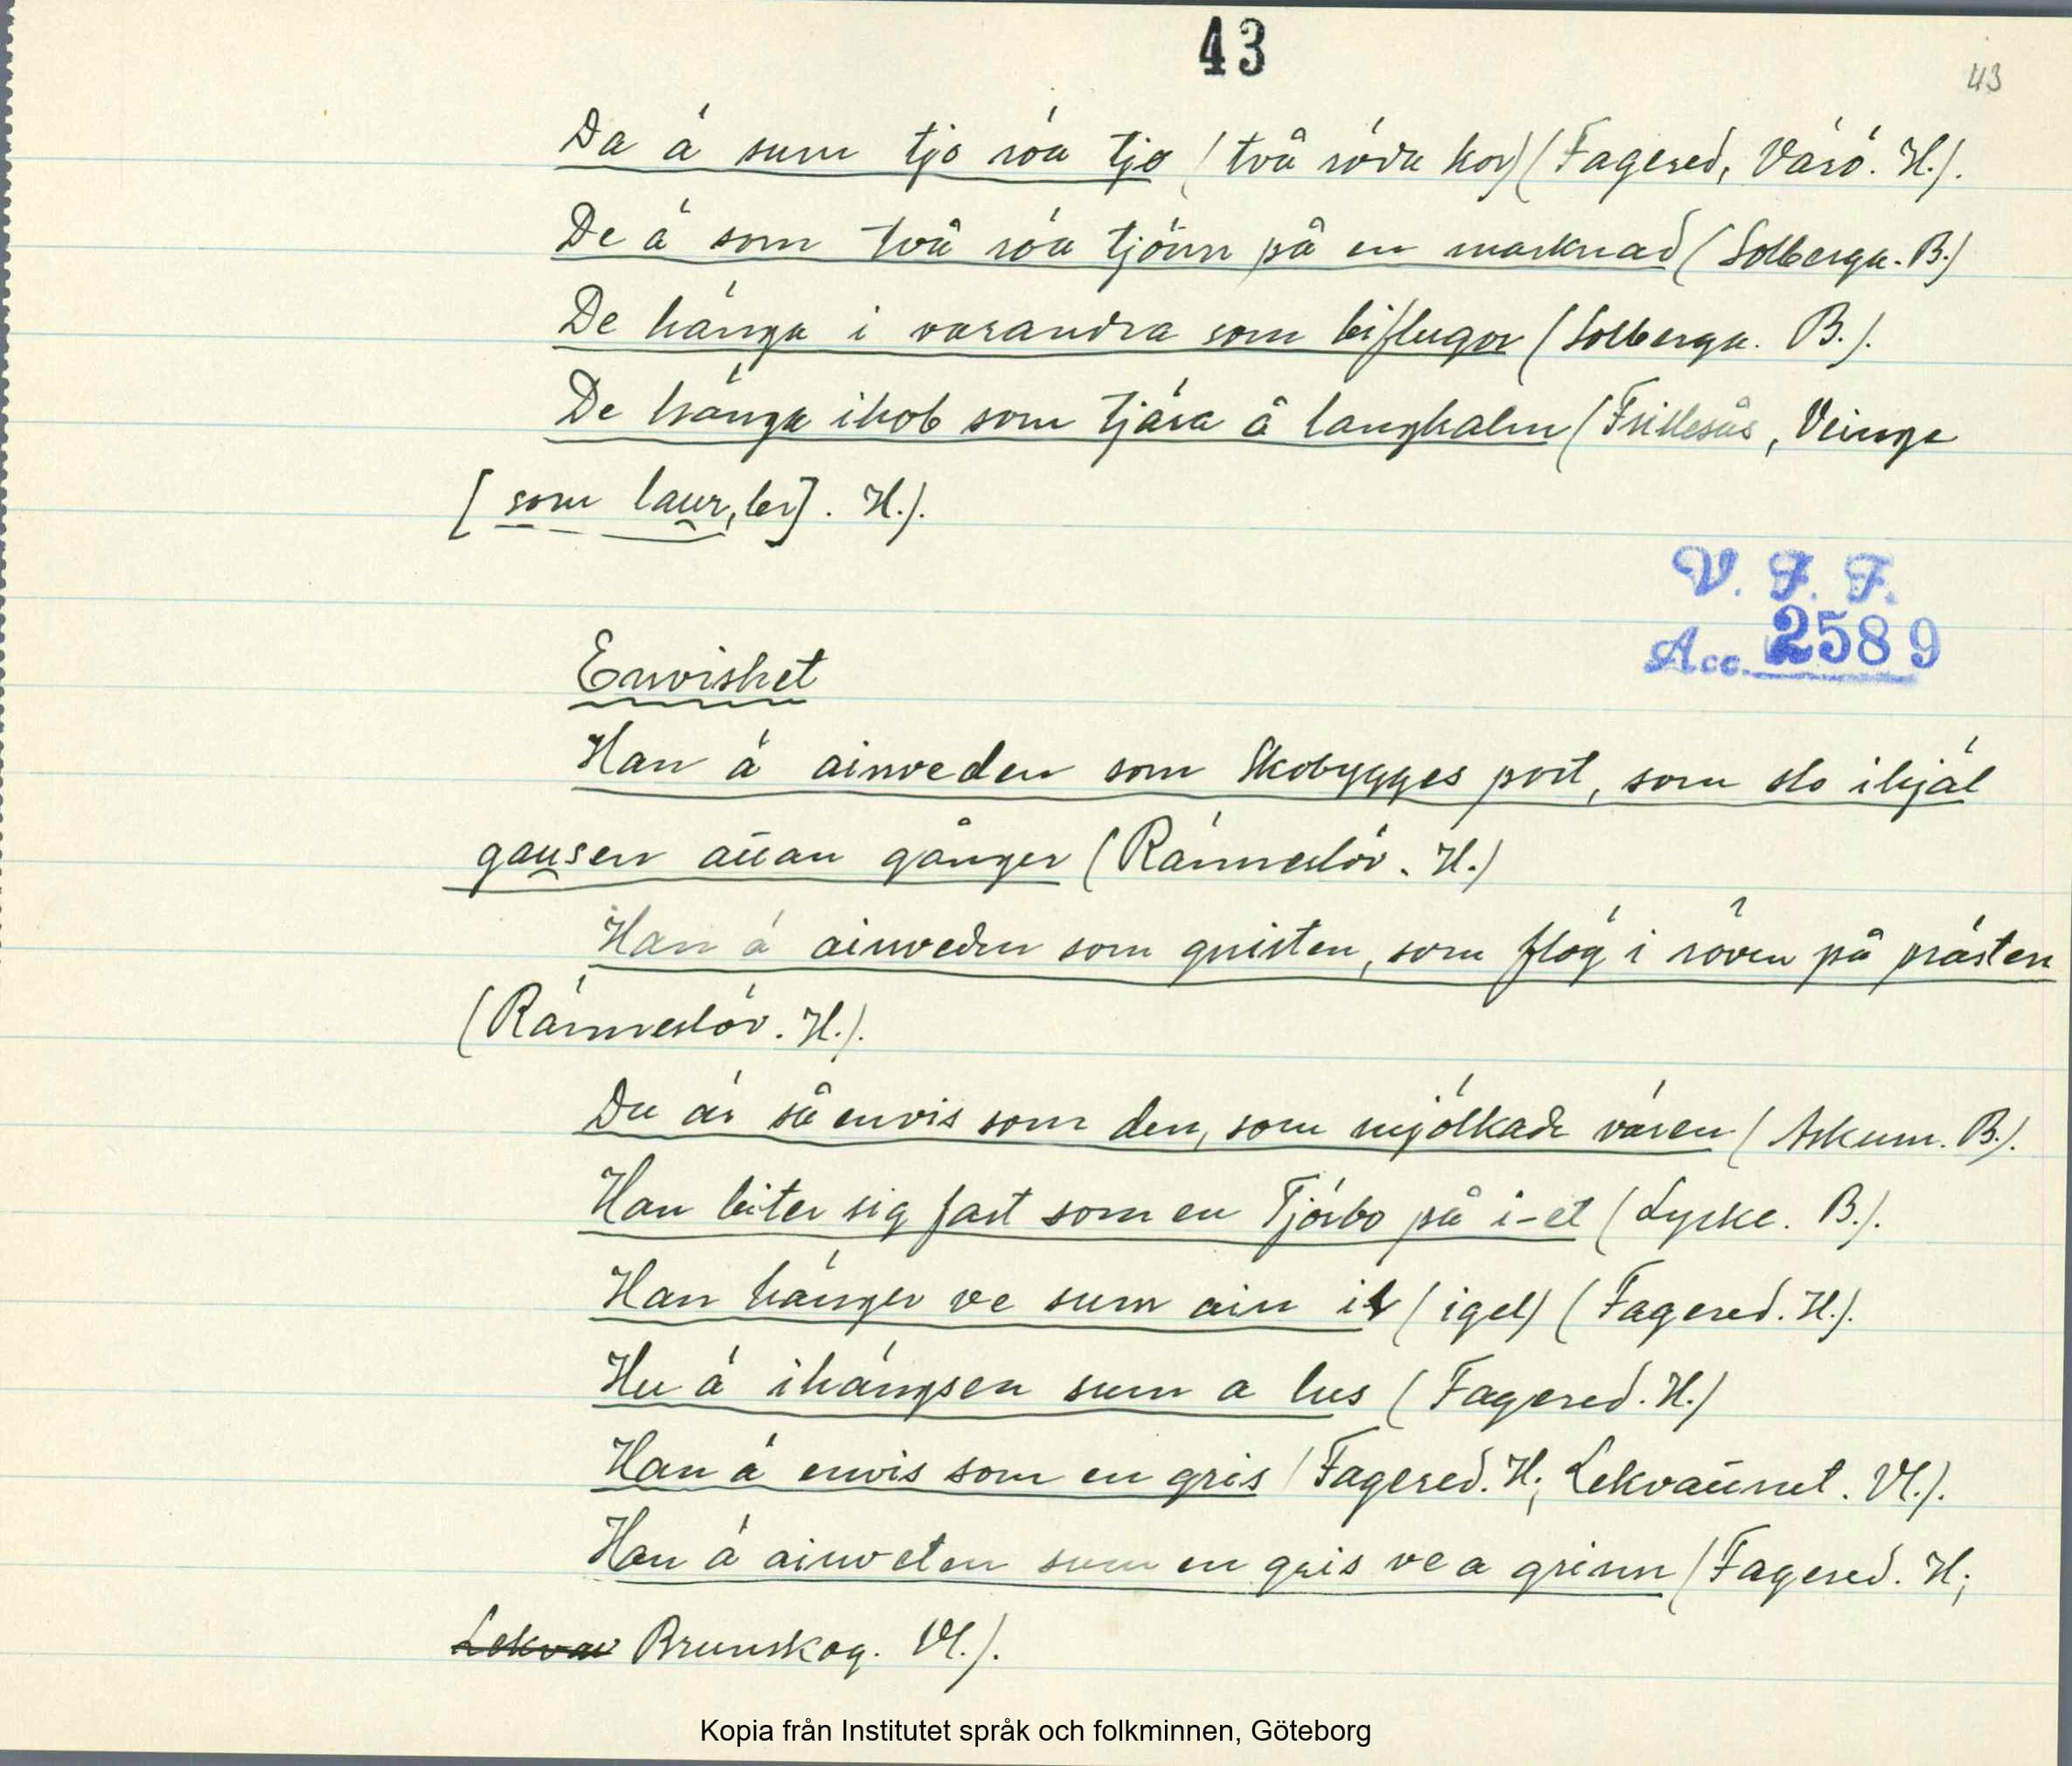 43
43
Da ä sum tjo röa tjo (två röda kor) (Fagered, Värö. H.).
De ä som två röa tjönn på en marknad (Solberga. B.)
De hänga i varandra som biflugor (Solberga. B.).
De hänga ihob som tjära å langhalm (Frillesås, Veinge
[som laur, ler]. H.).
V. F. F.
Acc. 2589
Envishet
Han ä ainveden som Skobygges port, som slo ihjäl
gausen auan gånger (Ränneslöv. H.)
Han ä ainveden som gnisten, som flög i röven på prästen
(Ränneslöv. H.).
Du är så envis som den, som mjölkade vären (Askum. B.).
Han biter sig fast som en Tjörbo på i-et (Lycke. B.).
Han hänger ve sum ain il (igel) (Fagered. H.).
Hu ä ihängsen sum a lus (Fagered. H.)
Han ä envis som en gris (Fagered. H; Lekvattnet. Vl.).
Han ä ainveten sum en gris ve a grinn (Fagered. H;
Lekvat Brunskog. Vl.).
Kopia från Institutet språk och folkminnen, Göteborg